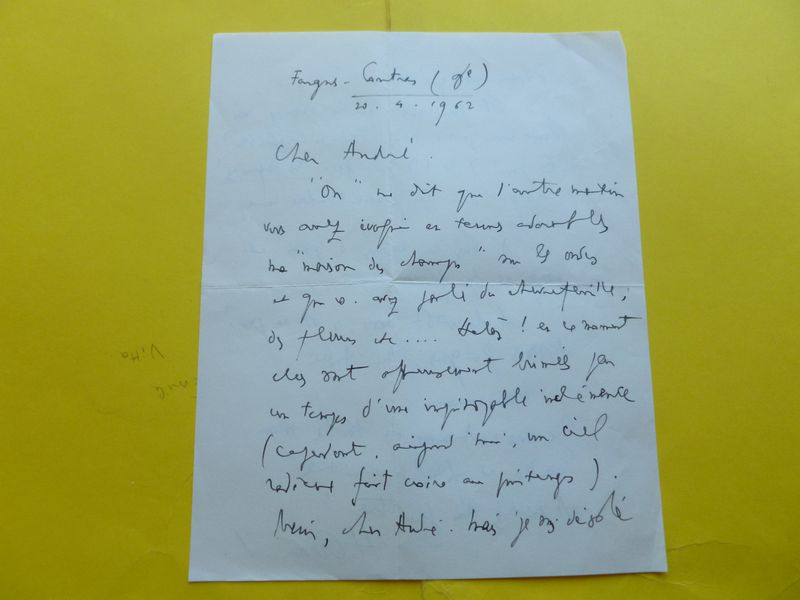 Cher André.
"On" me dit que l'autre matin
vous avez évoqué en termes adorables
ma "maison des champs" sur les ondes
et que v. avez parlé du chèvrefeuille,
des fleurs etc.... Hélas! en ce moment
elles sont affreusement brimées par
un temps d'une impitoyable inclémence
(cependant, aujourd'hui, un ciel
radieux fait croire au printemps).
Merci, cher André. Mais je suis désolé
20.4.1962